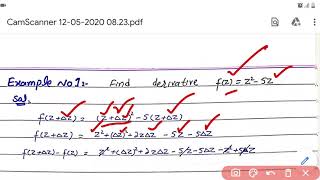 CamScanner 12-05-2020 08.23.pdf
Example No1:- Find derivative f(z) = z²-5z
Sol.
f(z+Δz) = (z+Δz)² - 5(z+Δz)
f(z+Δz) = z²+(Δz)²+2zΔz - 5z - 5Δz
f(z+Δz)-f(z) = z²+(Δz)²+2zΔz - 5z - 5Δz - z²+5z